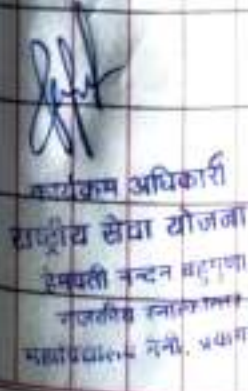 कार्यक्रम अधिकारी
राष्ट्रीय सेवा योजना
हेमवती नन्दन बहुगुणा
राजकीय स्नातकोत्तर
महाविद्यालय नैनी, प्रयाग